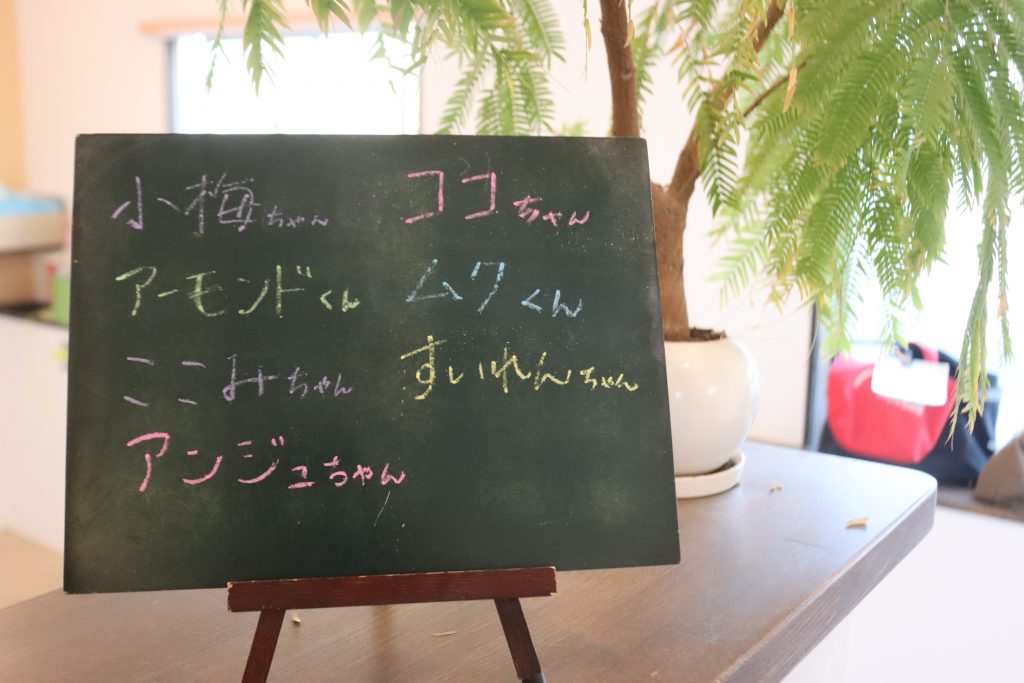 小梅ちゃん
アーモンドくん
ここみちゃん
アンジュちゃん
ココちゃん
ムクくん
すいれんちゃん